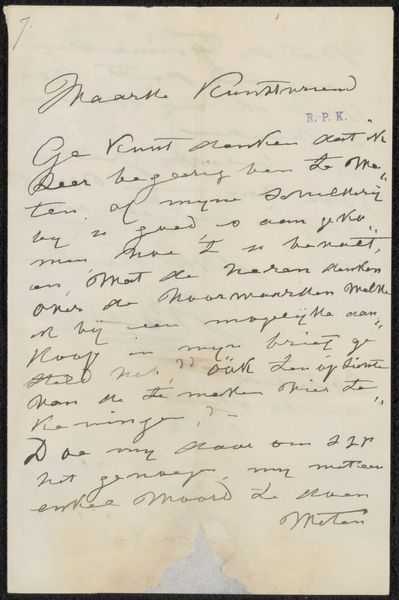 7.
Waarde Kunstvriend
R.P.K.
Ge kunt denken dat ik
zeer begeerig ben te we"
ten of mijne schilderij
bij u goed is aan geko"
men, hoe I U bevalt,
en, wat de heren denken
over de voorwaarden welke
ik bij een mogelijke aan"
koop in mijn brief ge
steld heb?? ook ten opsichte
van de te maken vier te"
keningen?
Doe mij daar om s.v.p.
het genoegen mij met een
enkel woord te doen
weten